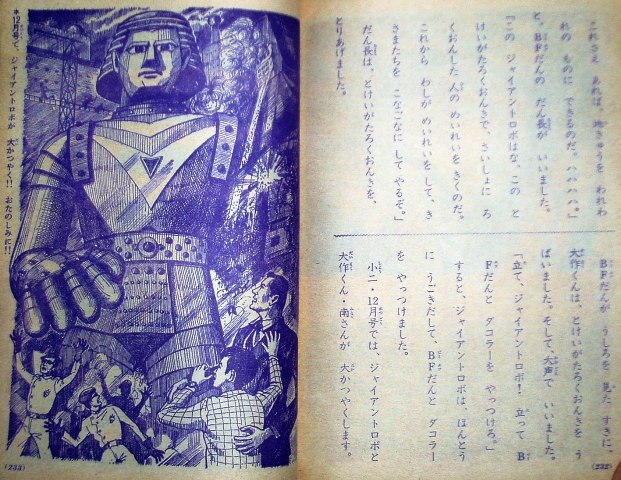 これさえ あれば、地きゅうを われわ
れの ものに できるのだ。ハハハハ。」
と、BFだんの だん長が いいました。
「この ジャイアントロボはな、この と
けいがたろくおんきで、さいしょに ろ
くおんした 人の めいれいを きくのだ。
これから わしが めいれいを して、き
さまたちを こなごなに してやるぞ。」
だん長は、とけいがたろくおんきを、
とりあげました。
BFだんが うしろを 見た すきに、
大作くんは、とけいがたろくおんきを う
ばいました。そして、大声で いいました。
「立て、ジャイアントロボ! 立って B
Fだんと ダコラーを やっつけろ。」
すると、ジャイアントロボは、ほんとう
に うごきだして、BFだんと ダコラー
を やっつけました。
小二・12月号では、ジャイアントロボと
大作くん・南さんが 大かつやくします。
(232)
12月号で、ジャイアントロボが 大かつやく!! おたのしみに!!
(233)